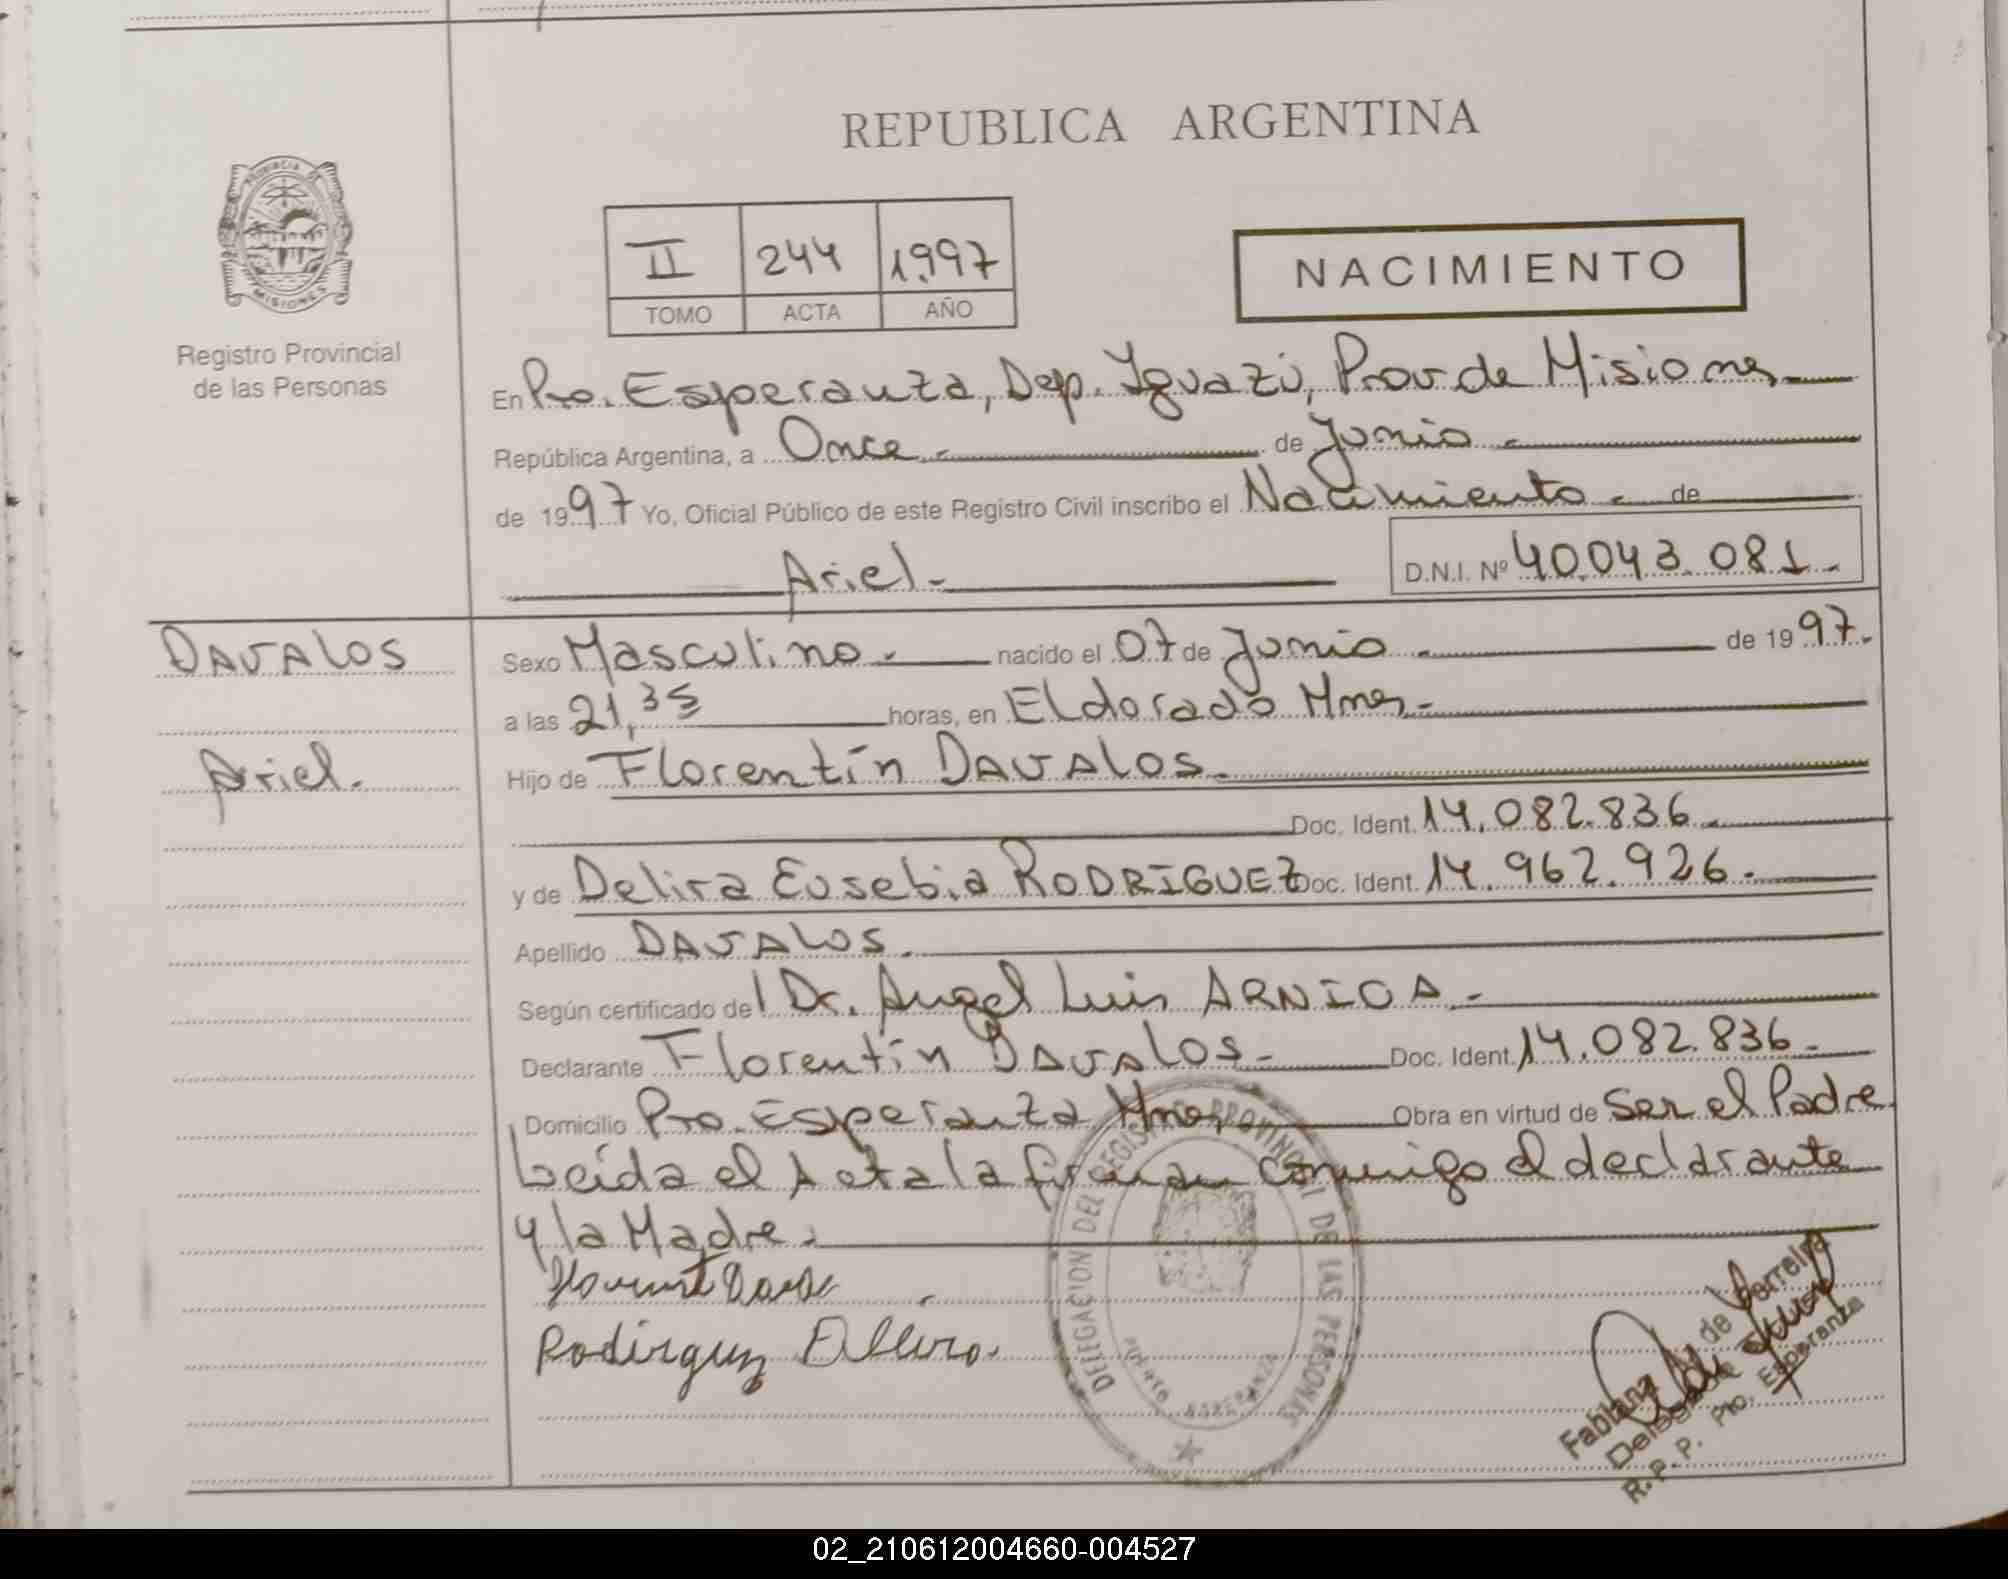 REPUBLICA ARGENTINA
PROVINCIA DE
MISIONES
Registro Provincial
de las Personas
II 244 1997
TOMO ACTA AÑO
NACIMIENTO
En Pto. Esperanza, Dep. Iguazú, Prov de Misiones
República Argentina, a Once. de Junio.
de 1997 Yo, Oficial Público de este Registro Civil inscribo el Nacimiento. de
Ariel. D.N.I. Nº 40.043.081.
DAVALOS
Ariel.
Sexo Masculino. nacido el 07 de Junio. de 1997.
a las 21,35 horas, en Eldorado Mnes.
Hijo de Florentín DAVALOS.
Doc. Ident. 14.082.836.
y de Delira Eusebia RODRIGUEZ Doc. Ident. 14.962.926.
Apellido DAVALOS.
Según certificado del Dr. Angel Luis ARNICA.
Declarante Florentín DAVALOS. Doc. Ident. 14.082.836.
Domicilio Pto. Esperanza Mnes, Obra en virtud de Ser el Padre.
Leída el Acta la firman conmigo el declarante
y la Madre.
Rodirguez
DELEGACION DEL REGISTRO PROVINCIAL DE LAS PERSONAS
PUERTO ESPERANZA
Fabiana de Ferreira
Delegada
R. P. P. Pto. Esperanza
02_210612004660-004527